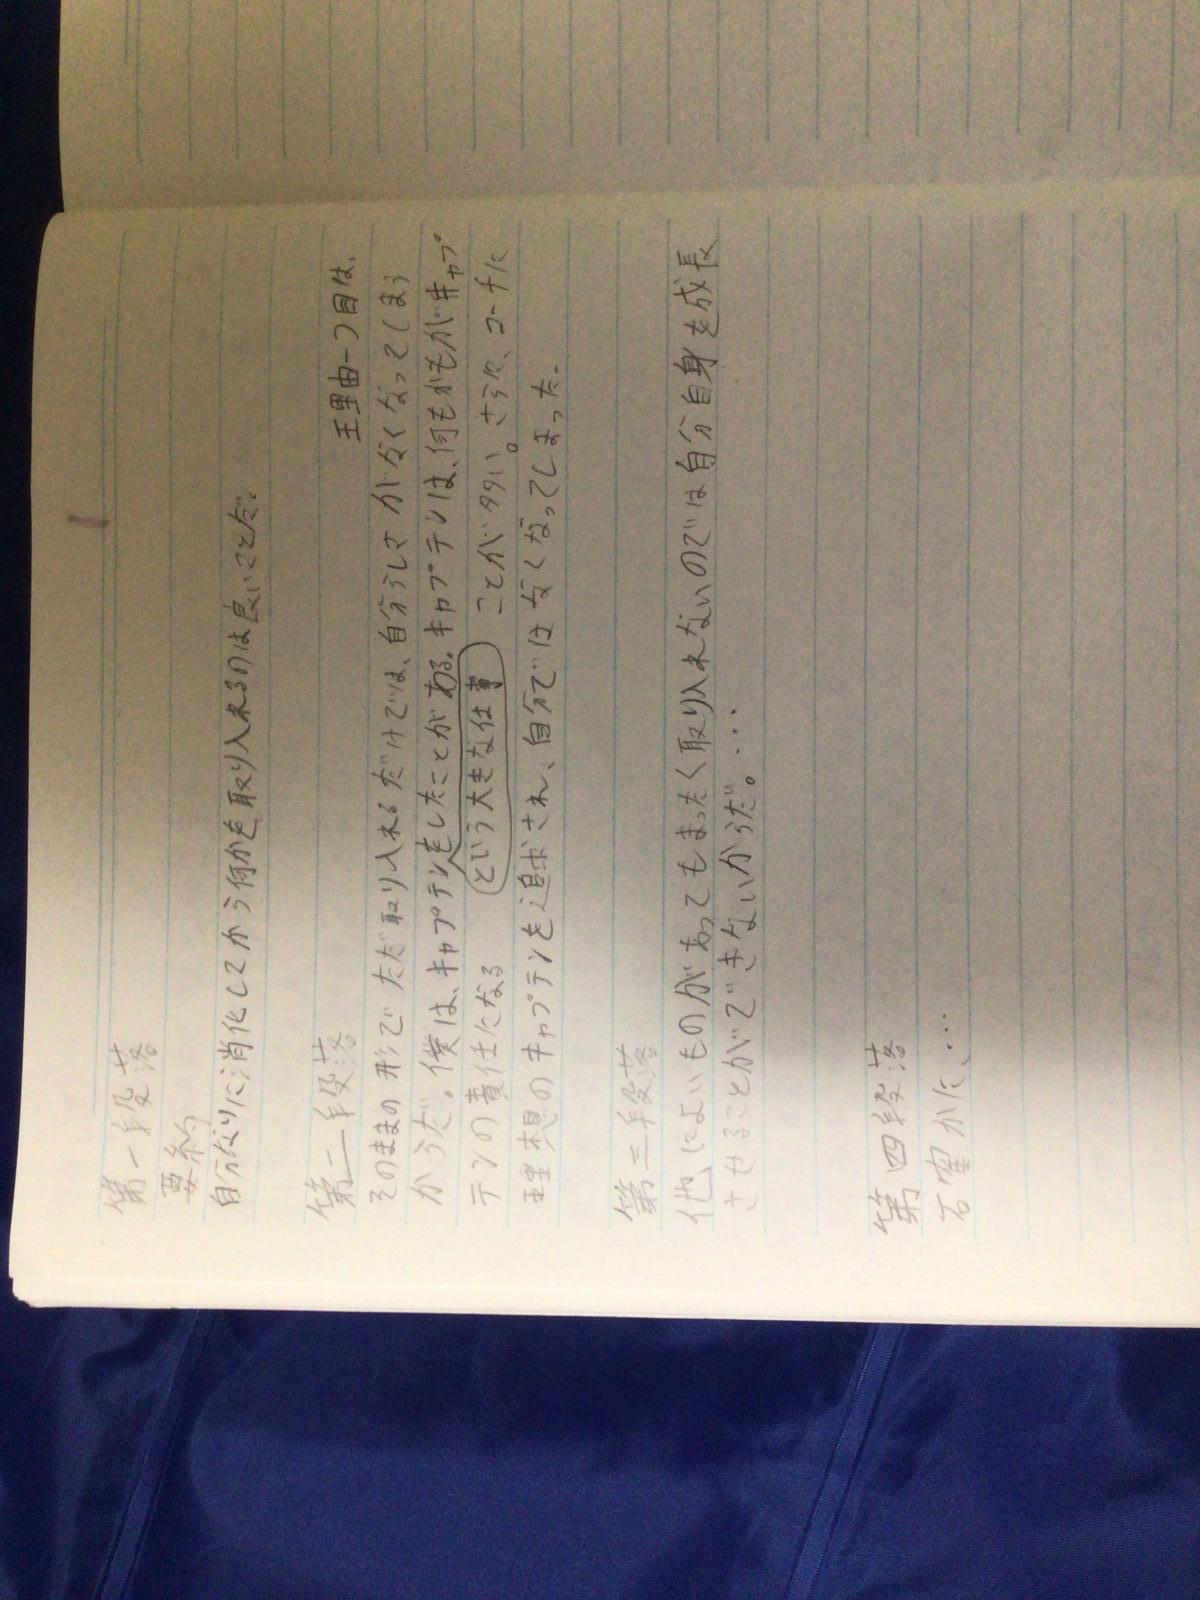 第一段落
要約
自分なりに消化してから何かを取り入れるのは良いことだ。
第二段落
理由一つ目は、
そのままの形でただ取り入れるだけでは、自分らしさがなくなってしまう
からだ。僕は、キャプテンをしたことがある。キャプテンは、何もかもがキャプ
という大きな仕事
テンの責任たなることが多い。さらに、コーチに
理想のキャプテンを追求され、自分ではなくなってしまった。
第三段落
他によいものがあってもまったく取り入れないのでは自分自身を成長
させることができないからだ。・・・
第四段落
確かに、・・・